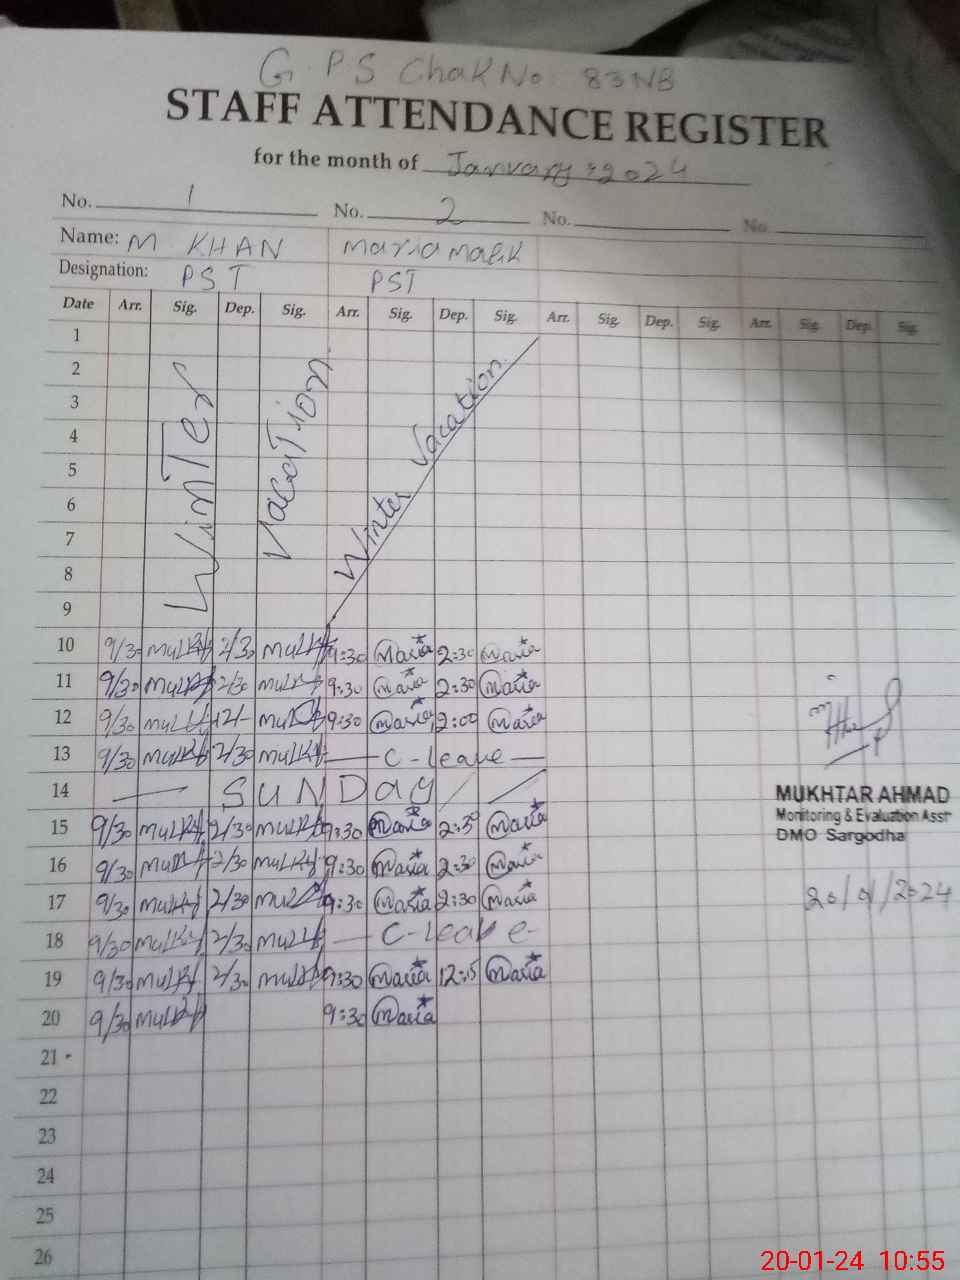 G.P.S Chak No. 83NB
STAFF ATTENDANCE REGISTER
for the month of January 2024
No. 1 No. 2 No. No.
Name: M KHAN Maria Malik
Designation: PST PST
Date Arr. Sig. Dep. Sig. Arr. Sig. Dep. Sig. Arr. Sig. Dep. Sig. Arr. Sig. Dep. Sig.
1
2
3
4
5
6
7
8
9
Winter Vacation
Winter Vacation
10 9/30 2/30 9:30 Maria 2:30 Maria
11 9/30 2/30 9:30 Maria 2:30 Maria
12 9/30 12/- 9:30 Maria 12:00 Maria
13 9/30 2/30 C-leave
14 SUNDAY
15 9/30 2/30 9:30 Maria 2:30 Maria
16 9/30 2/30 9:30 Maria 2:30 Maria
17 9/30 2/30 9:30 Maria 2:30 Maria
18 9/30 2/30 C-Leave
19 9/30 2/30 9:30 Maria 12:15 Maria
20 9/30 9:30 Maria
21
22
23
24
25
26
MUKHTAR AHMAD
Monitoring & Evaluation Asst
DMO Sargodha
20/01/2024
20-01-24 10:55